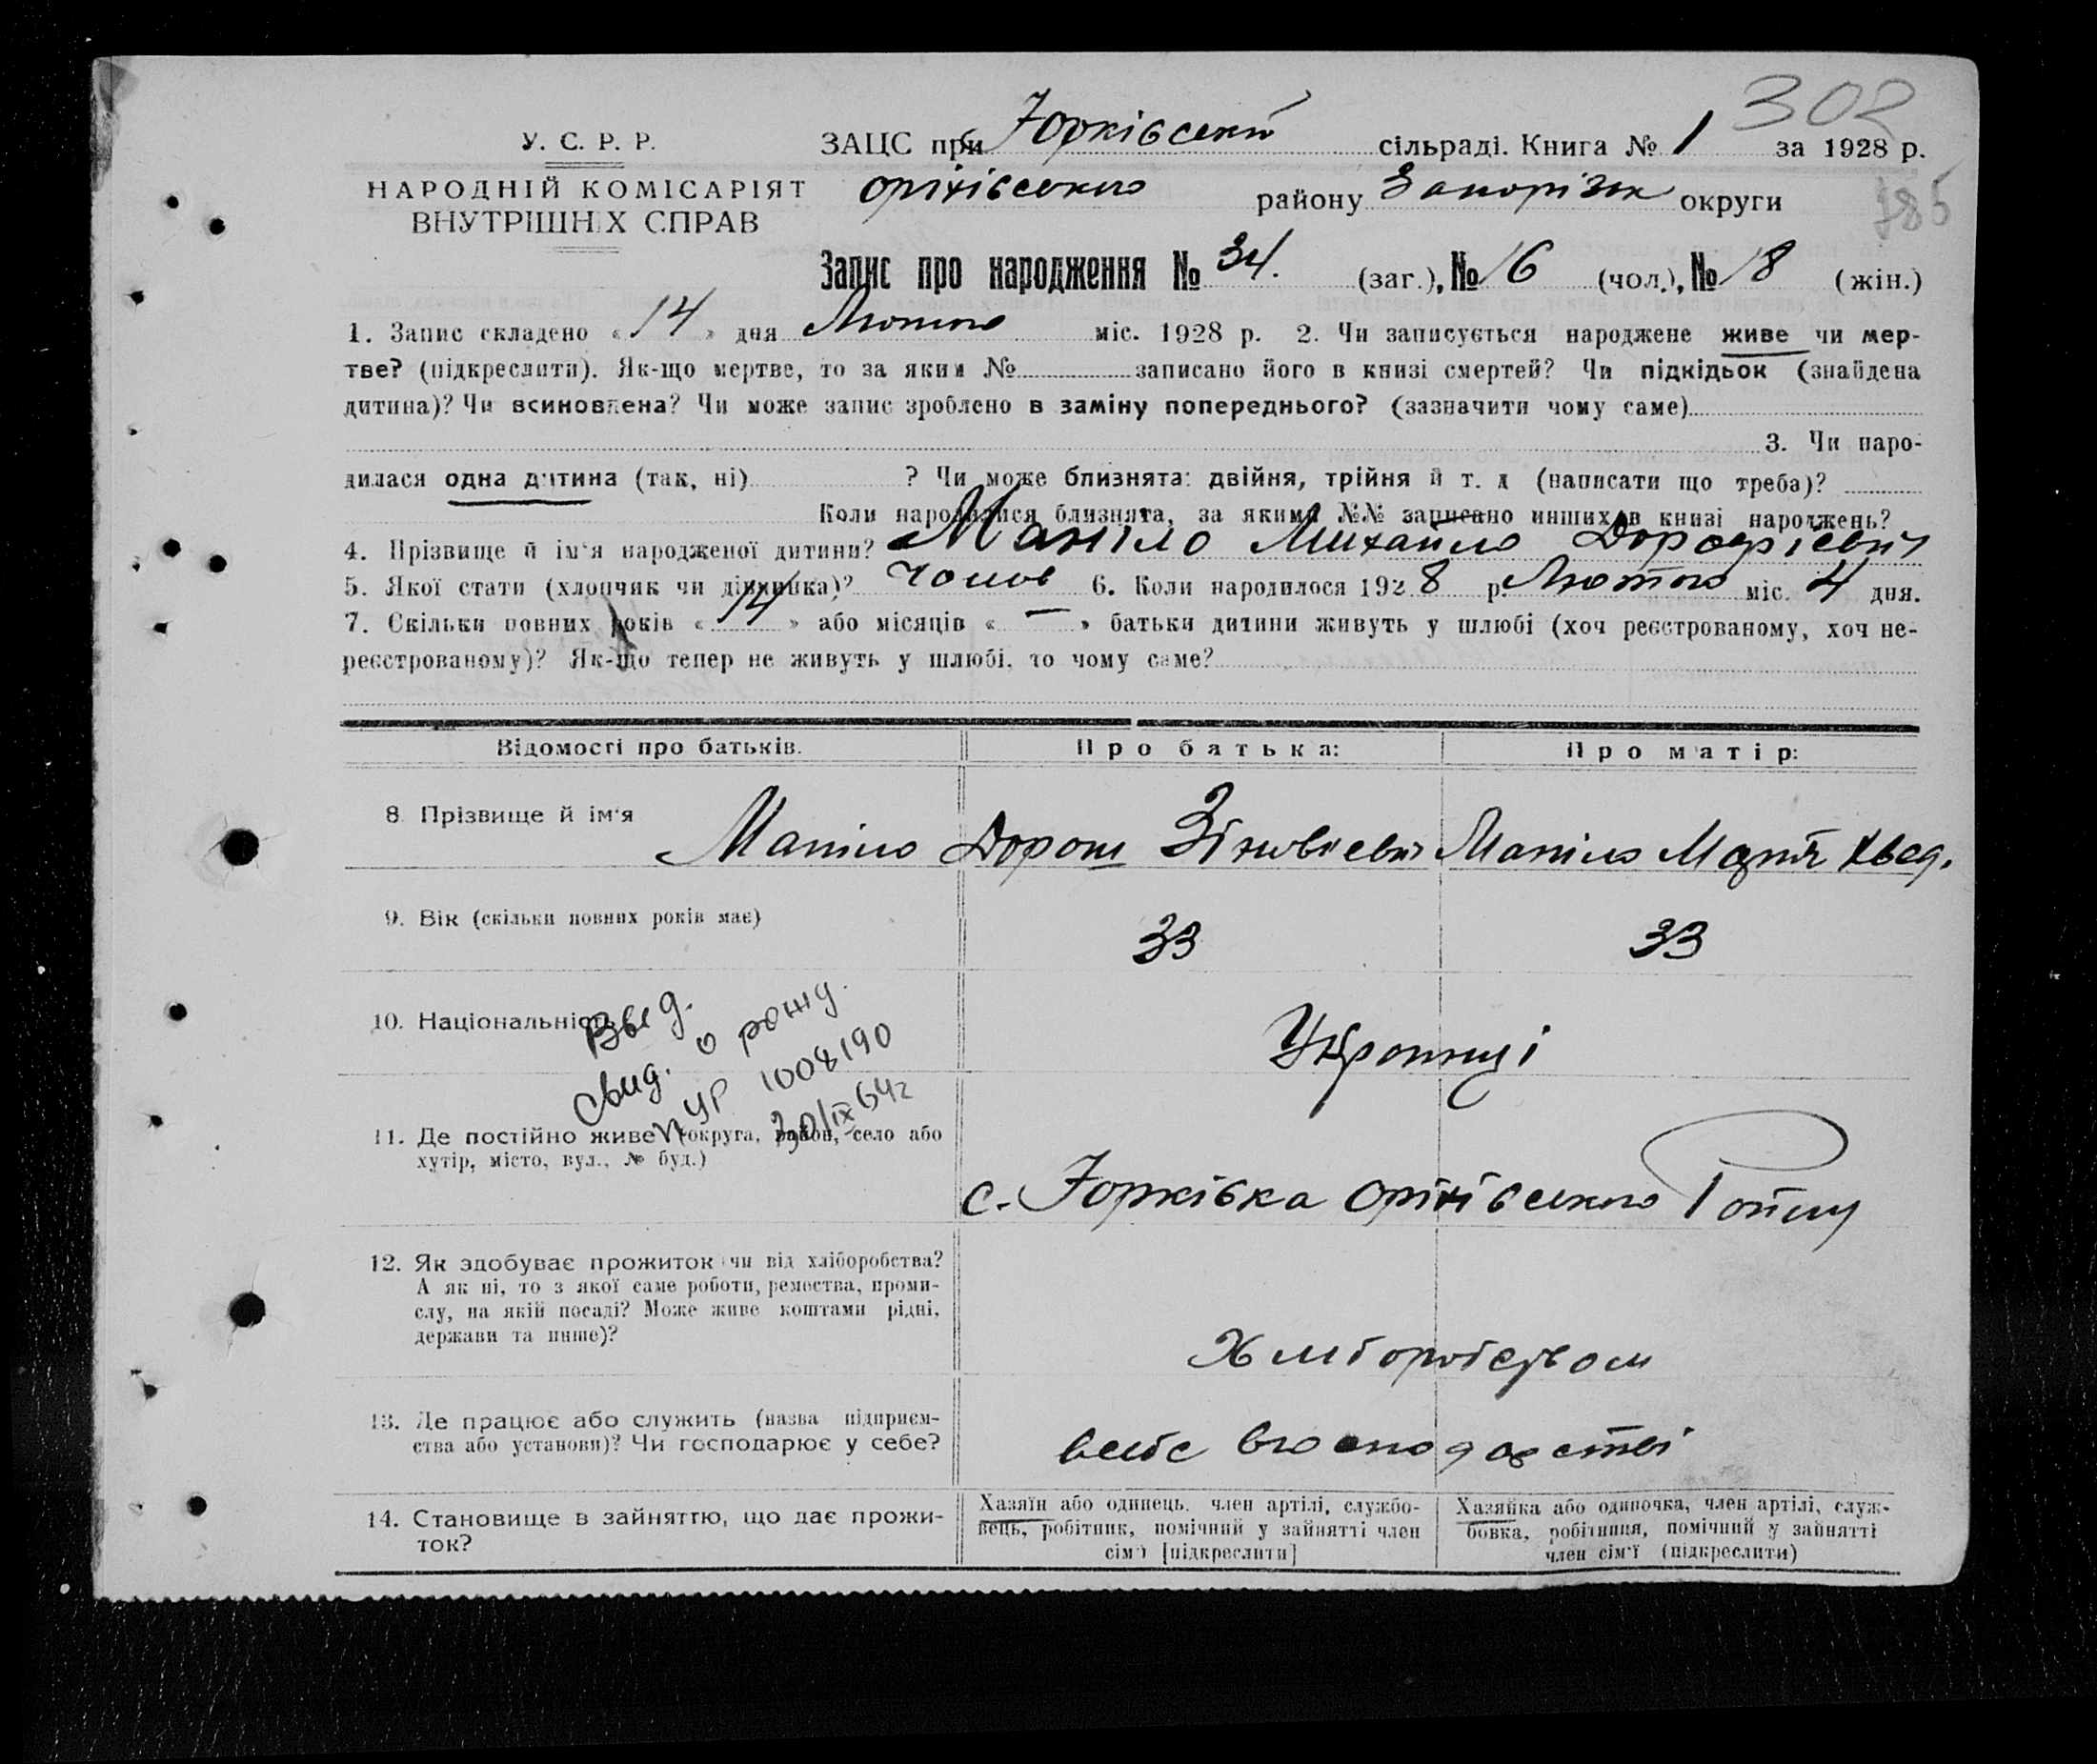 302
У. С. Р. Р.
ЗАЦС при Юрківській сільраді. Книга № 1 за 1928 р.
НАРОДНІЙ КОМІСАРІЯТ
ВНУТРІШНІХ СПРАВ
оріхівського району Запоріж округи
185
Запис про народження № 34. (заг.), № 16 (чол.), № 18 (жін.)
1. Запис складено « 14 » дня Лютого міс. 1928 р. 2. Чи записується народжене живе чи мер-
тве? (підкреслити). Як-що мертве, то за яким № записано його в книзі смертей? Чи підкідьок (знайдена
дитина)? Чи всиновлена? Чи може запис зроблено в заміну попереднього? (зазначити чому саме)
3. Чи наро-
дилася одна дитина (так, ні) ? Чи може близнята: двійня, трійня й т. д (написати що треба)?
Коли народилися близнята, за якими №№ записано инших в книзі народжень?
4. Прізвище й ім'я народженої дитини? Маніло Михайло Дорофієвич
5. Якої стати (хлопчик чи дівчинка)? Чолов 6. Коли народилося 1928 р. Лютого міс. 4 дня.
7. Скільки повних років « 14 » або місяців « — » батьки дитини живуть у шлюбі (хоч реєстрованому, хоч не-
реєстрованому)? Як-що тепер не живуть у шлюбі, то чому саме?
Відомості про батьків. Про батька: Про матір:
8. Прізвище й ім'я Маніло Дорош Зіновиевич Маніло Марія Хвед.
9. Вік (скільки повних років має) 33 33
10. Національність Українці
Выд.
свид. о рожд.
УР 1008190
30/IX 64г
11. Де постійно живе (округа, район, село або
хутір, місто, вул., № буд.)
с. Юрківка оріхівського Району
12. Як здобуває прожиток (чи від хліборобства?
А як ні, то з якої саме роботи, ремества, проми-
слу, на якій посаді? Може живе коштами рідні,
держави та инше)?
Хліборобством
13. Де працює або служить (назва підприєм-
ства або установи)? Чи господарює у себе?
всебе вгосподарстві
14. Становище в зайняттю, що дає прожи-
ток?
Хазяїн або одинець, член артілі, службо-
вець, робітник, помічний у зайнятті член
сім'ї [підкреслити]
Хазяйка або одиночка, член артілі, служ-
бовка, робітниця, помічний у зайнятті
член сім'ї (підкреслити)